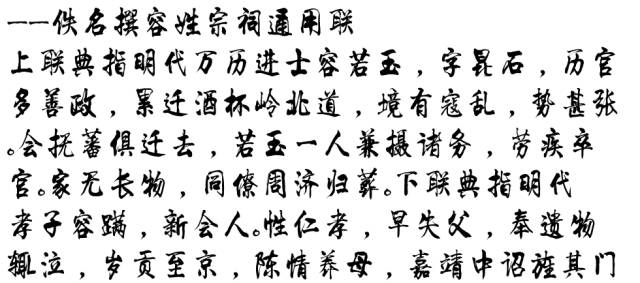 ——佚名撰容姓宗祠通用联
上联典指明代万历进士容若玉，字昆石，历官
多善政，累迁酒杯岭北道，境有寇乱，势甚张
。会抚蕃俱迁去，若玉一人兼摄诸务，劳疾卒
官。家无长物，同僚周济归葬。下联典指明代
孝子容蹒，新会人。性仁孝，早失父，奉遗物
辄泣，岁贡至京，陈情养母，嘉靖中诏旌其门